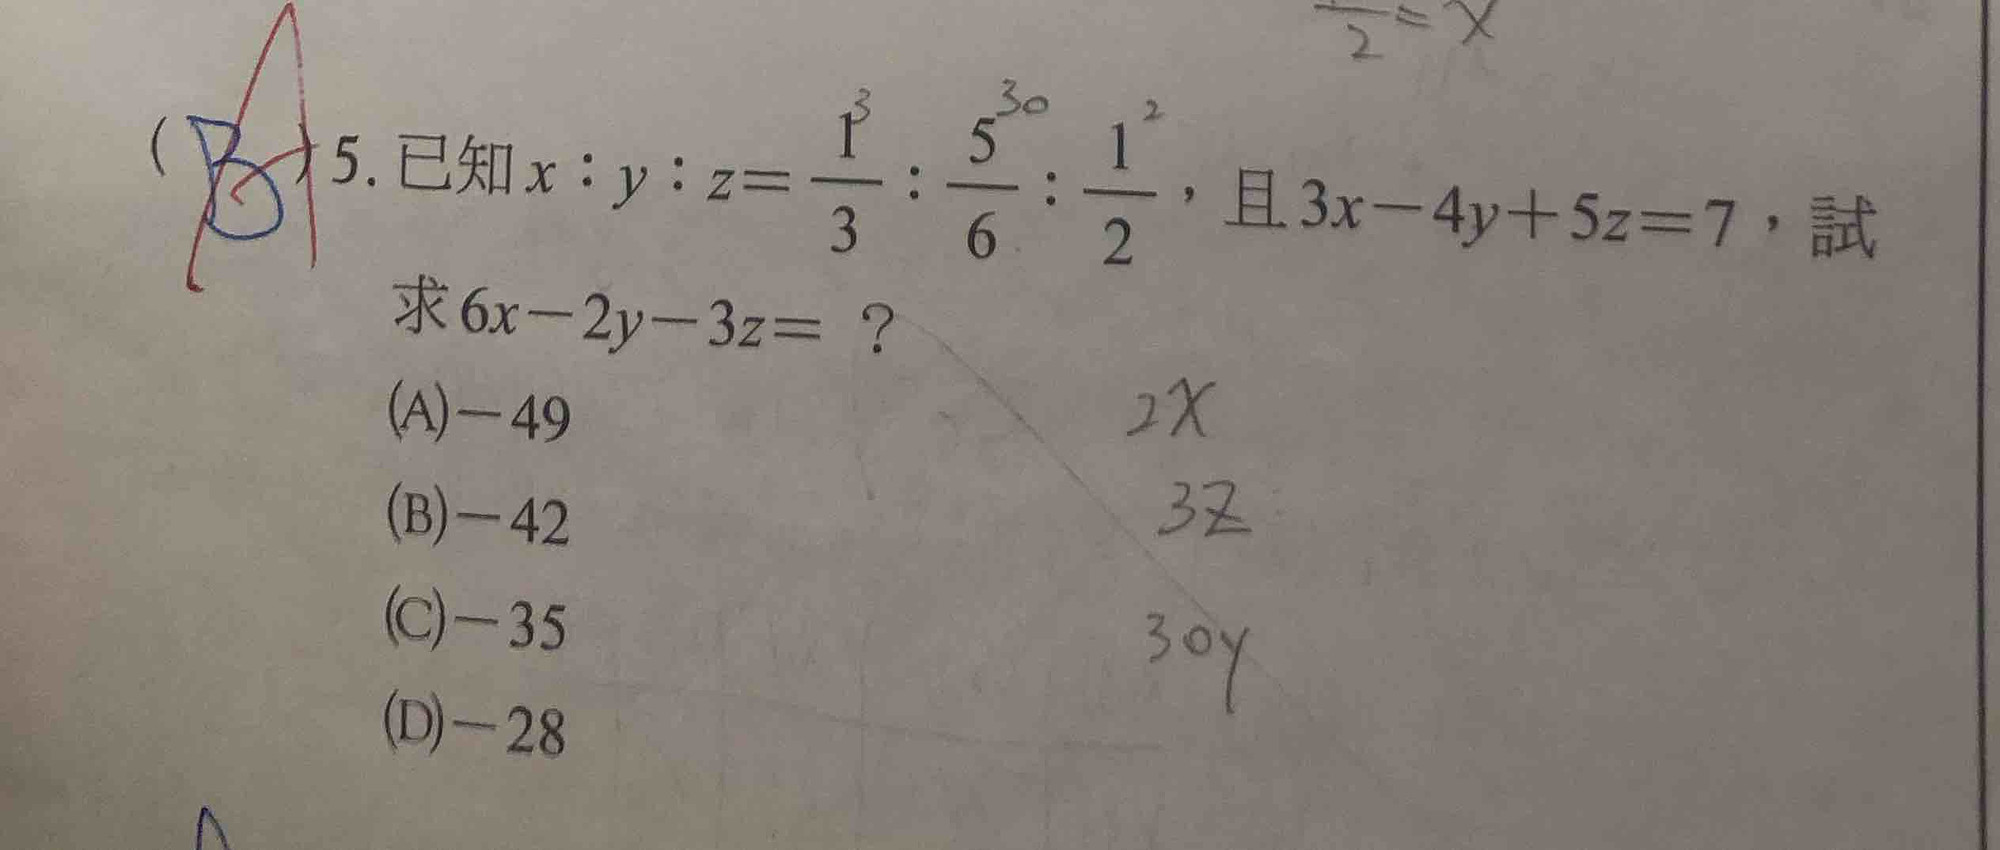 /2 = x
3 30 2
(B A) 5. 已知 x：y：z＝1/3：5/6：1/2，且 3x－4y＋5z＝7，試
求 6x－2y－3z＝ ？
(A)－49
2x
(B)－42
3z
(C)－35
30y
(D)－28